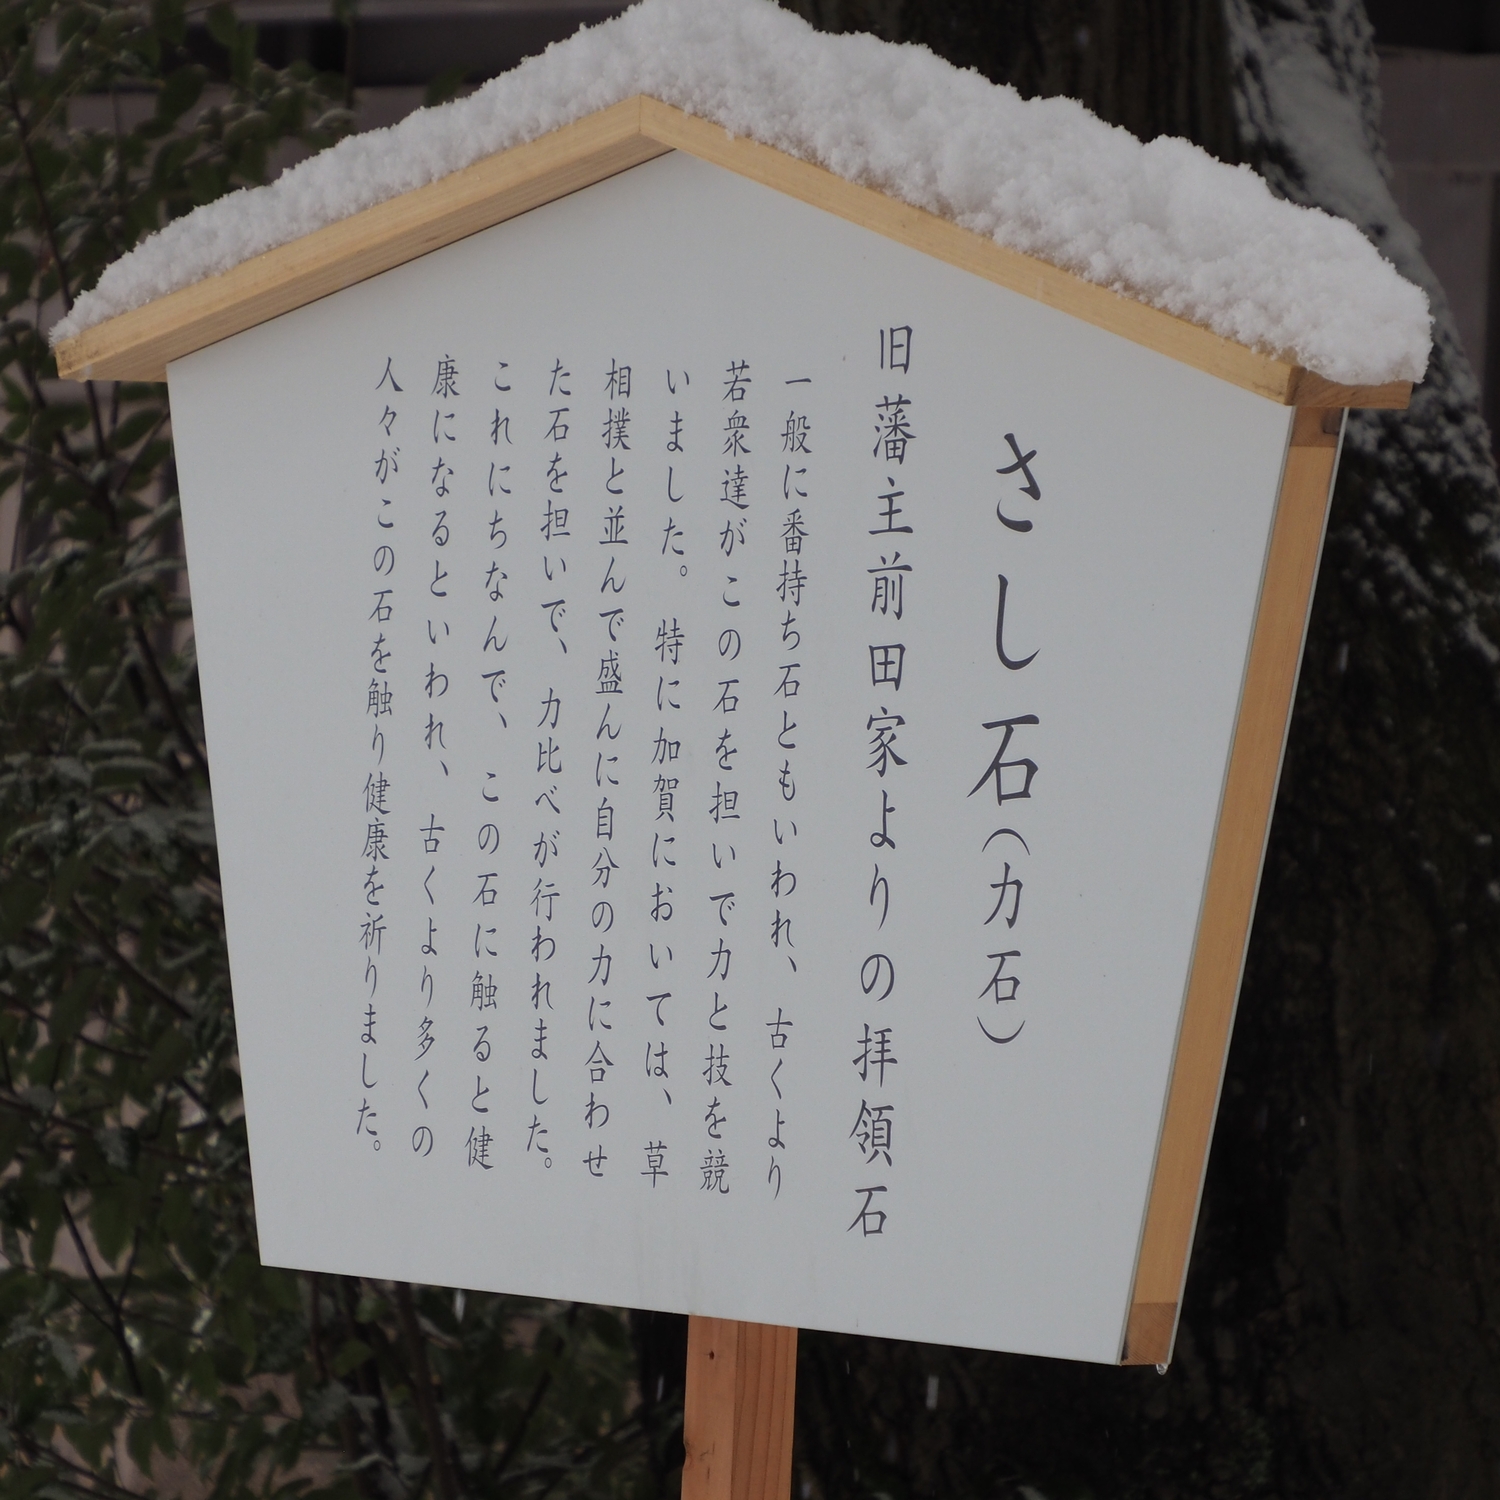 さし石（力石）
旧藩主前田家よりの拝領石
一般に番持ち石ともいわれ、古くより
若衆達がこの石を担いで力と技を競
いました。特に加賀においては、草
相撲と並んで盛んに自分の力に合わせ
た石を担いで、力比べが行われました。
これにちなんで、この石に触ると健
康になるといわれ、古くより多くの
人々がこの石を触り健康を祈りました。